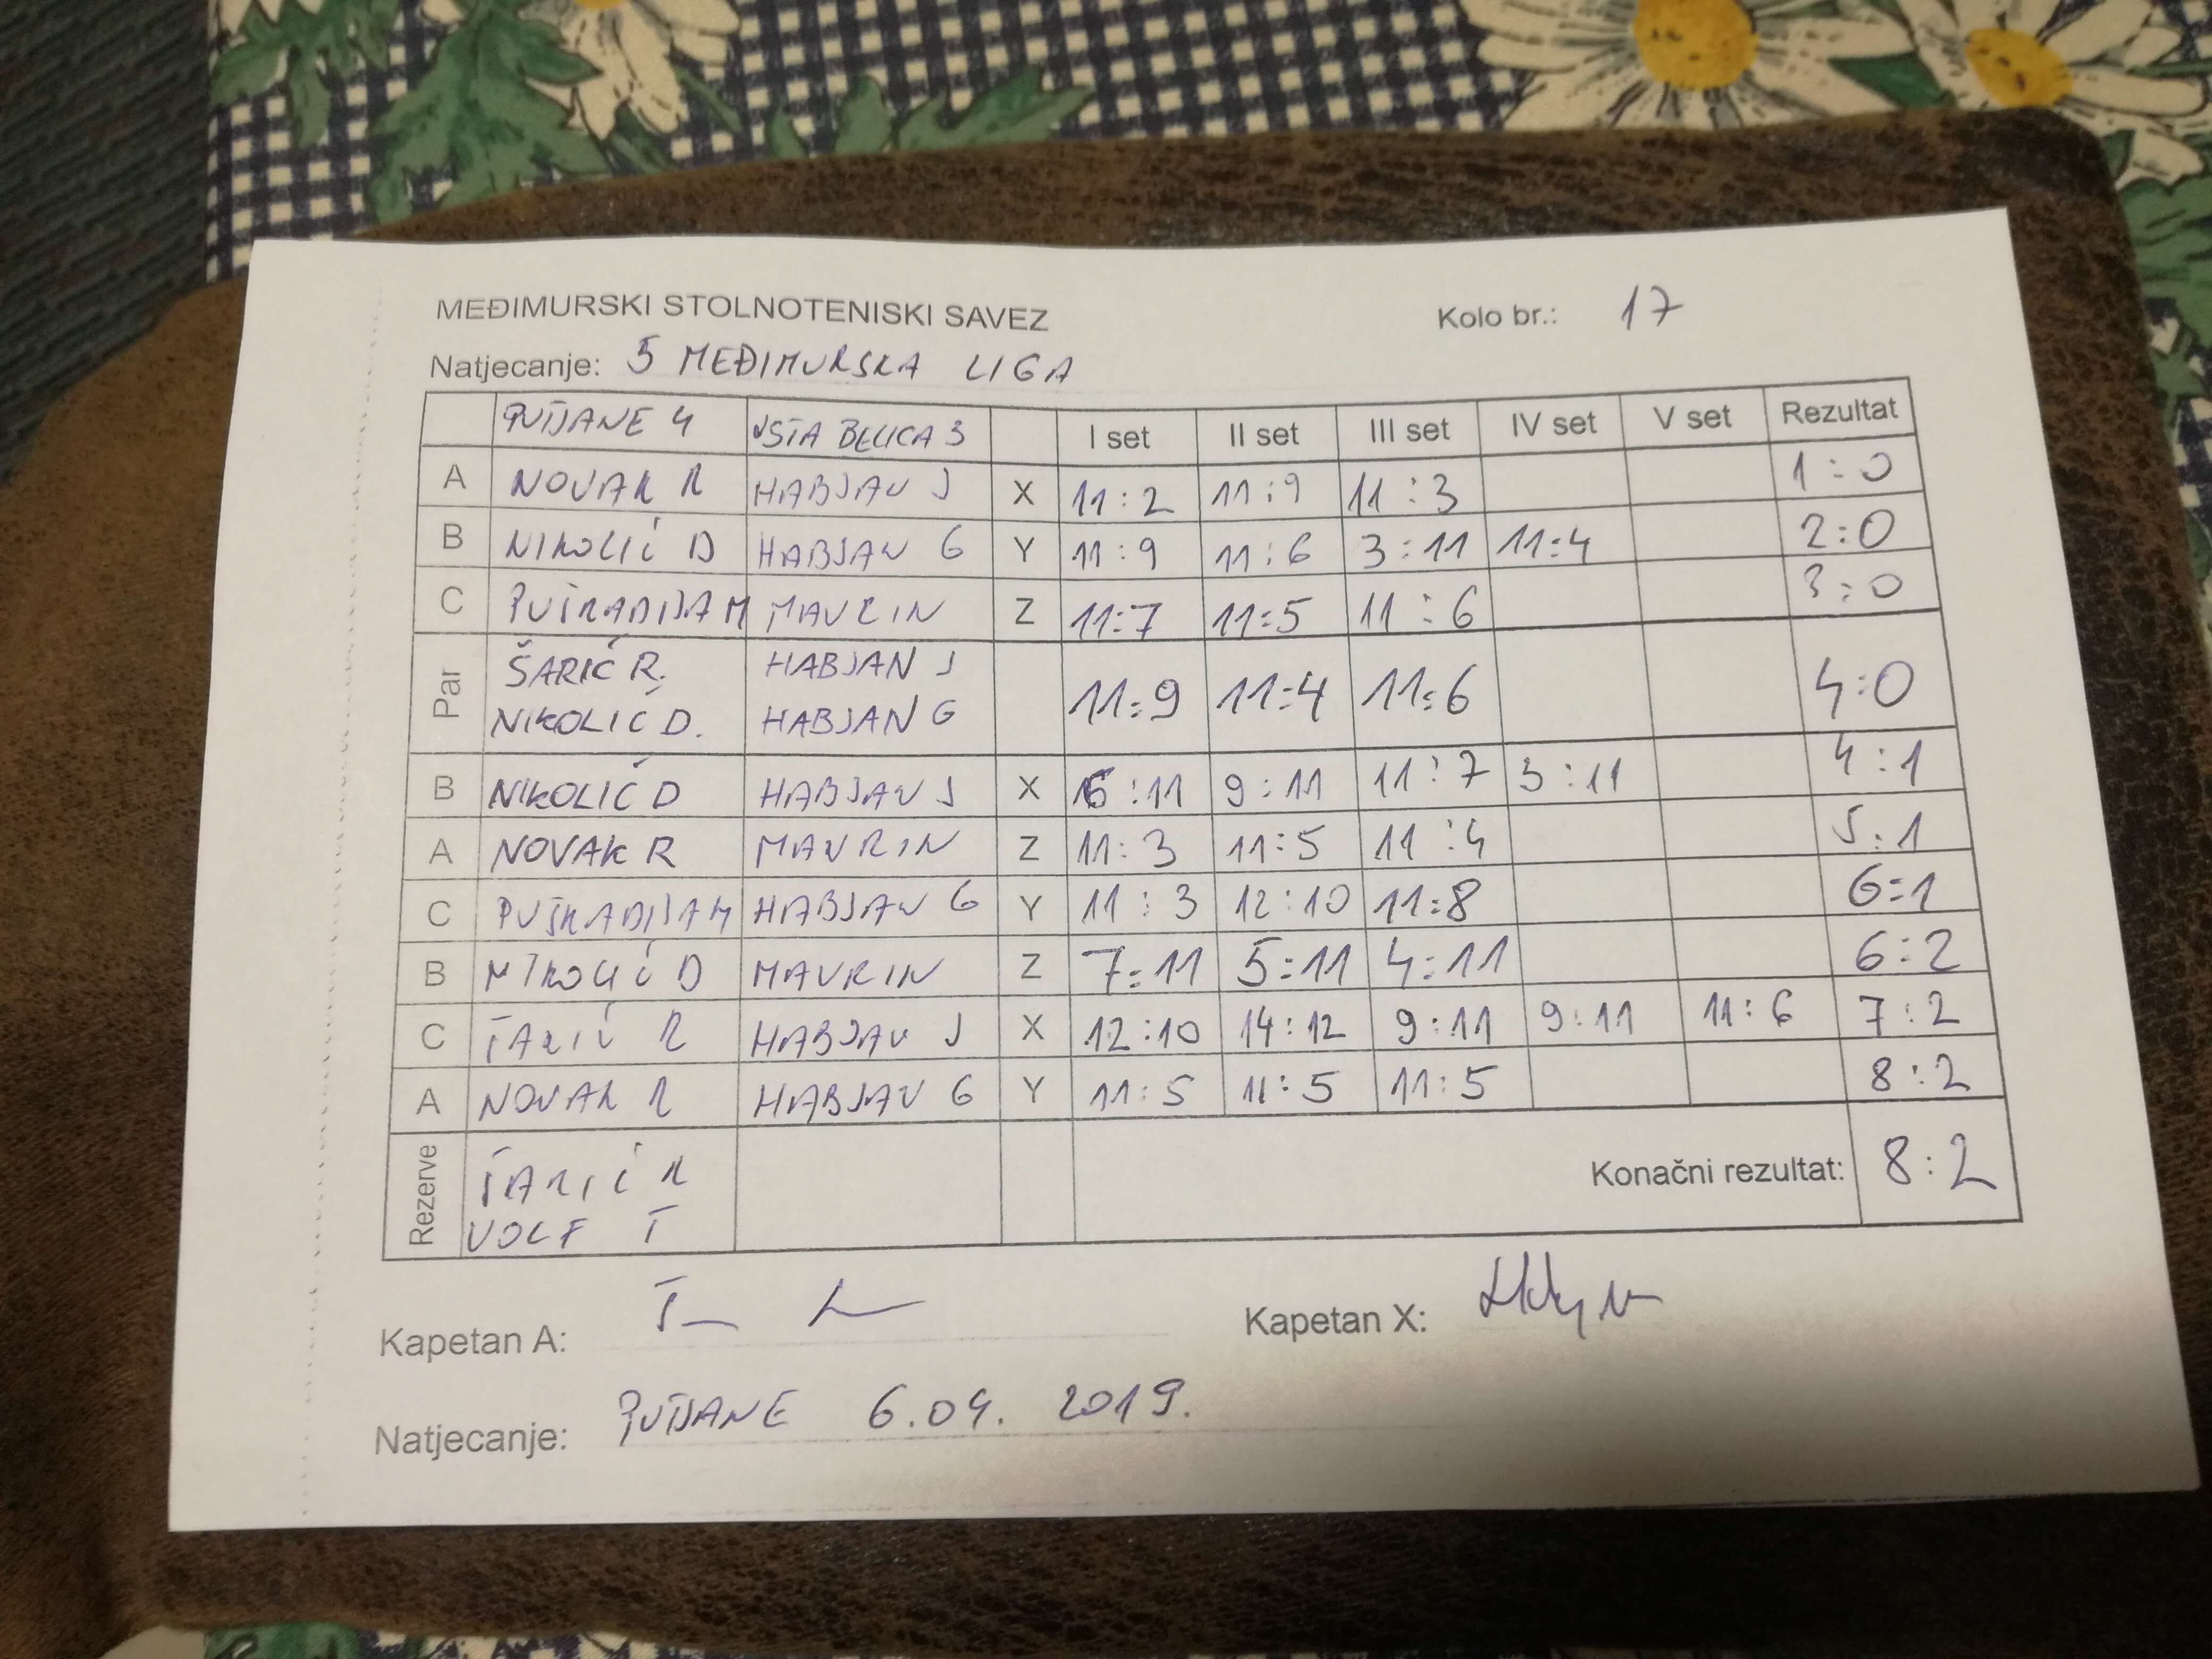 MEĐIMURSKI STOLNOTENISKI SAVEZ Kolo br.: 17
Natjecanje: 5 MEĐIMURSKA LIGA
PUŠĆANE 4 USTA BELICA 3 I set II set III set IV set V set Rezultat
A NOVAK R HABJAN J X 11:2 11:9 11:3 1:0
B NIKOLIĆ D HABJAN G Y 11:9 11:6 3:11 11:4 2:0
C PUŠKADIJA M MAVRIN Z 11:7 11:5 11:6 3:0
Par ŠARIĆ R. HABJAN J 11:9 11:4 11:6 4:0
NIKOLIĆ D. HABJAN G
B NIKOLIĆ D HABJAN J X 6:11 9:11 11:7 3:11 4:1
A NOVAK R MAVRIN Z 11:3 11:5 11:4 5:1
C PUŠKADIJA M HABJAN G Y 11:3 12:10 11:8 6:1
B NIKOLIĆ D MAVRIN Z 7:11 5:11 4:11 6:2
C ŠARIĆ R HABJAN J X 12:10 14:12 9:11 9:11 11:6 7:2
A NOVAK R HABJAN G Y 11:5 11:5 11:5 8:2
Rezerve ŠARIĆ R Konačni rezultat: 8:2
VOLF Š
Kapetan A: Kapetan X:
Natjecanje: 6.04. 2019.